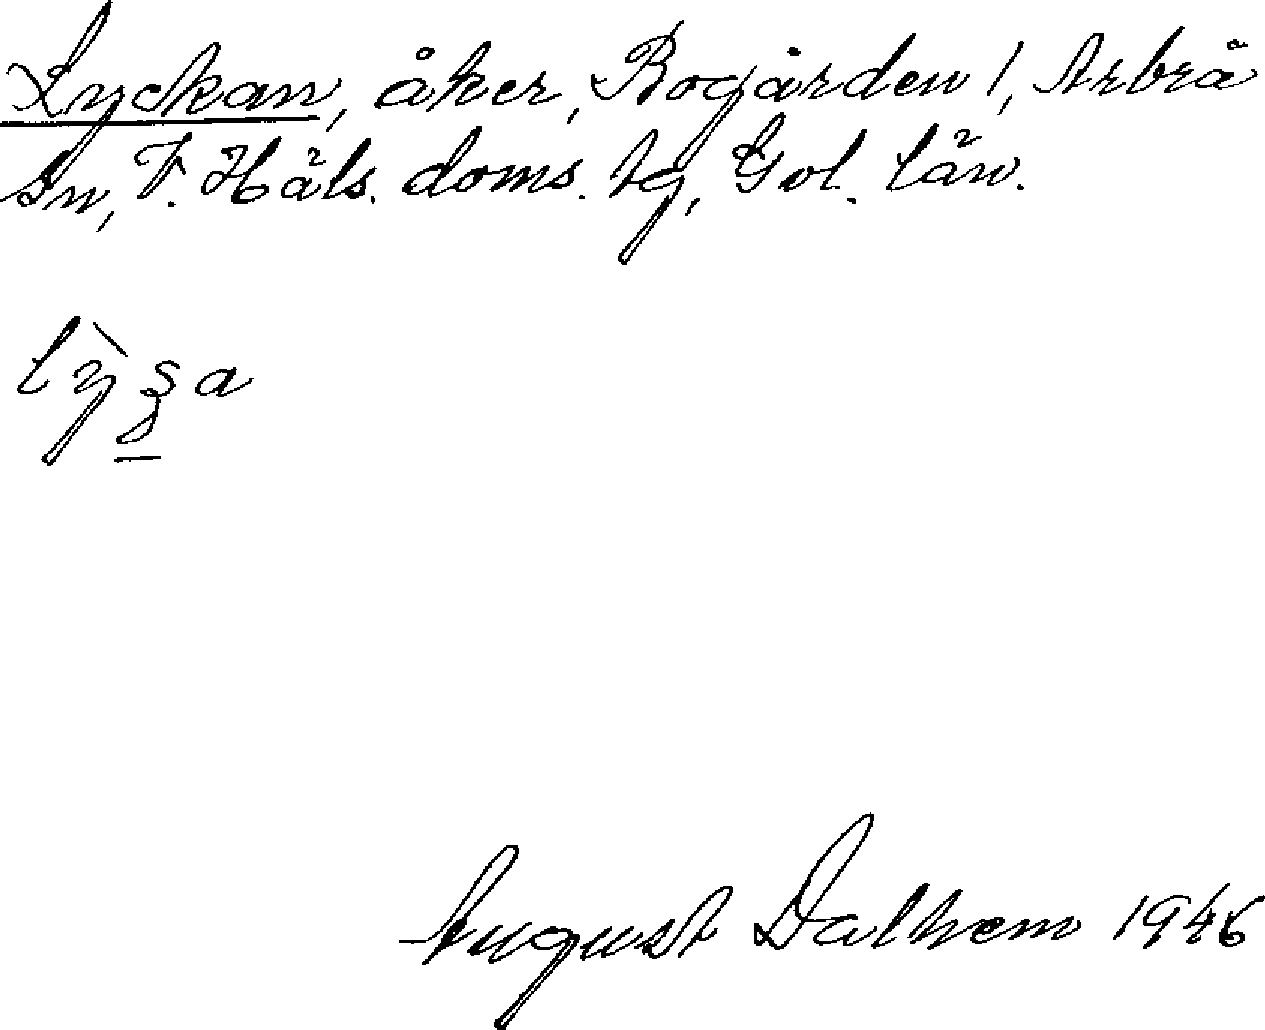 Lyckan, åker, Bogården 1, Arbrå
Sn, V. Häls. doms. tg, Gvl. län.
August Dalhem 1946